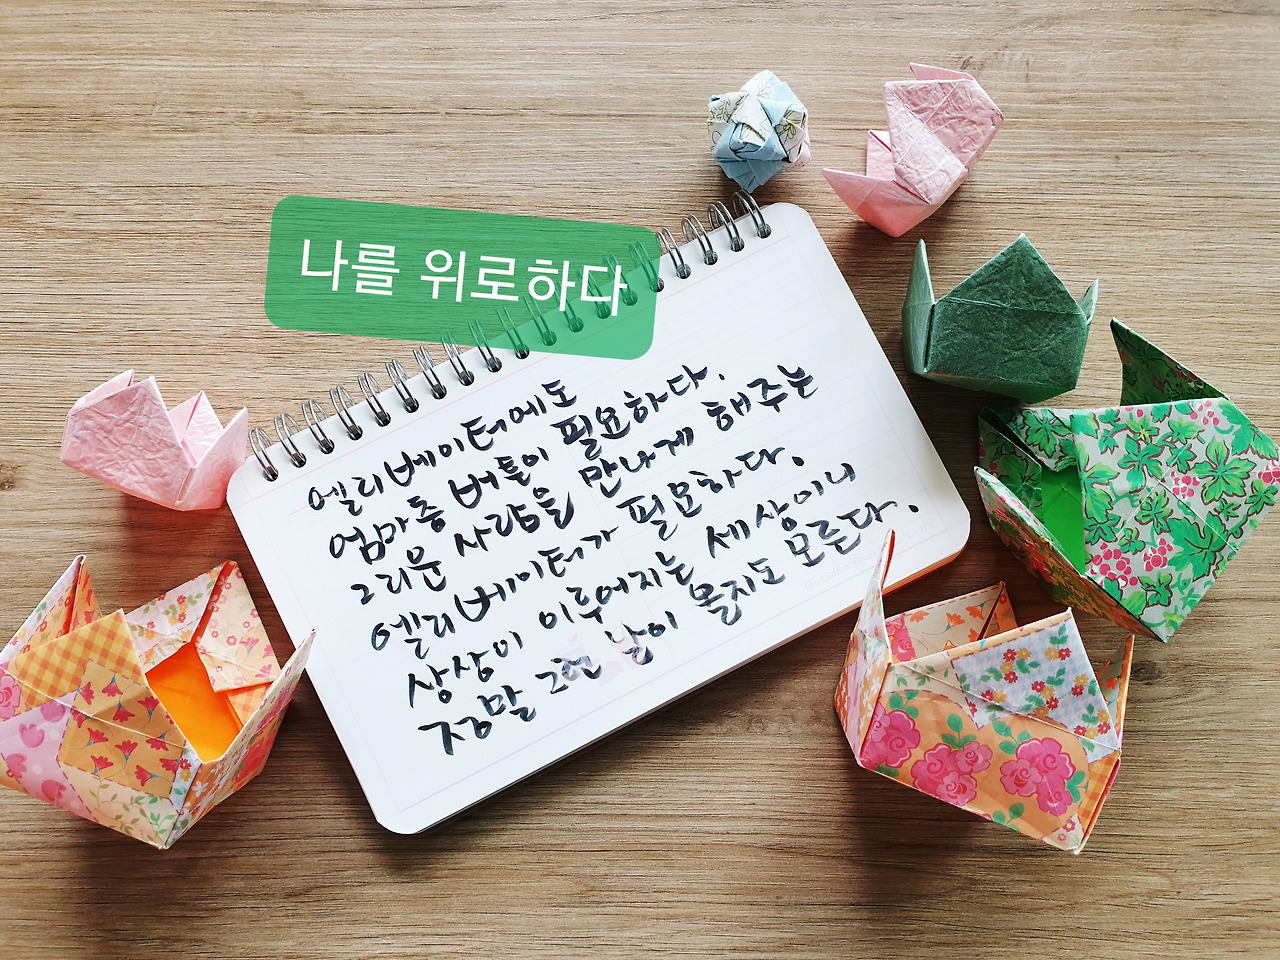 나를 위로하다
엘리베이터에도
엄마층 버튼이 필요하다.
그리운 사람을 만나게 해주는
엘리베이터가 필요하다.
상상이 이루어지는 세상이니
정말 그런 날이 올지도 모른다.